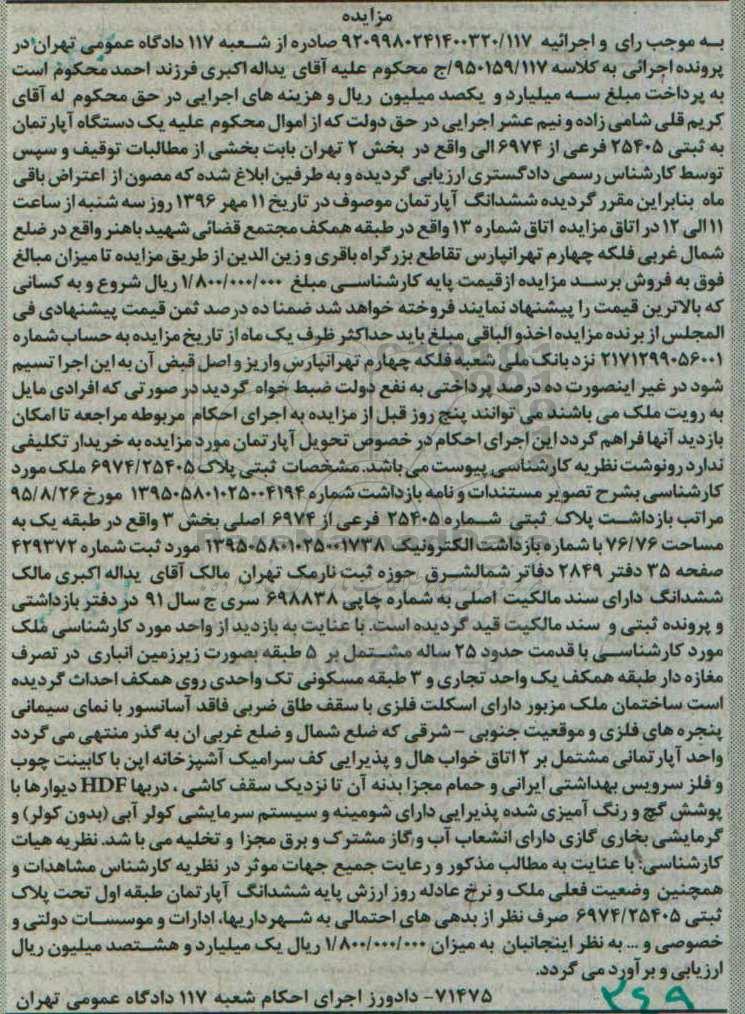 مزایده
به موجب رای و اجرائیه ۹۲۰۹۹۸۰۲۴۱۴۰۰۳۲۰/۱۱۷ صادره از شعبه ۱۱۷ دادگاه عمومی تهران در
پرونده اجرائی به کلاسه ۹۵۰۱۵۹/۱۱۷/ج محکوم علیه آقای یداله اکبری فرزند احمد محکوم است
به پرداخت مبلغ سه میلیارد و یکصد میلیون ریال و هزینه های اجرایی در حق محکوم له آقای
کریم قلی شامی زاده و نیم عشر اجرایی در حق دولت که از اموال محکوم علیه یک دستگاه آپارتمان
به ثبتی ۲۵۴۰۵ فرعی از ۶۹۷۴ الی واقع در بخش ۲ تهران بابت بخشی از مطالبات توقیف و سپس
توسط کارشناس رسمی دادگستری ارزیابی گردیده و به طرفین ابلاغ شده که مصون از اعتراض باقی
ماه بنابراین مقرر گردیده ششدانگ آپارتمان موصوف در تاریخ ۱۱ مهر ۱۳۹۶ روز سه شنبه از ساعت
۱۱ الی ۱۲ در اتاق مزایده اتاق شماره ۱۳ واقع در طبقه همکف مجتمع قضائی شهید باهنر واقع در ضلع
شمال غربی فلکه چهارم تهرانپارس تقاطع بزرگراه باقری و زین الدین از طریق مزایده تا میزان مبالغ
فوق به فروش برسد مزایده از قیمت پایه کارشناسی مبلغ ۱/۸۰۰/۰۰۰/۰۰۰ ریال شروع و به کسانی
که بالاترین قیمت را پیشنهاد نمایند فروخته خواهد شد ضمنا ده درصد ثمن قیمت پیشنهادی فی
المجلس از برنده مزایده اخذو الباقی مبلغ باید حداکثر ظرف یک ماه از تاریخ مزایده به حساب شماره
۲۱۷۱۲۹۹۰۵۶۰۰۱ نزد بانک ملی شعبه فلکه چهارم تهرانپارس واریز و اصل قبض آن به این اجرا تسیم
شود در غیر اینصورت ده درصد پرداختی به نفع دولت ضبط خواه گردید در صورتی که افرادی مایل
به رویت ملک می باشند می توانند پنج روز قبل از مزایده به اجرای احکام مربوطه مراجعه تا امکان
بازدید آنها فراهم گردد این اجرای احکام در خصوص تحویل آپارتمان مورد مزایده به خریدار تکلیفی
ندارد رونوشت نظریه کارشناسی پیوست می باشد. مشخصات ثبتی پلاک ۶۹۷۴/۲۵۴۰۵ ملک مورد
کارشناسی بشرح تصویر مستندات و نامه بازداشت شماره ۱۳۹۵۰۵۸۰۱۰۲۵۰۰۴۱۹۴ مورخ ۹۵/۸/۲۶
مراتب بازداشت پلاک ثبتی شماره ۲۵۴۰۵ فرعی از ۶۹۷۴ اصلی بخش ۳ واقع در طبقه یک به
مساحت ۷۶/۷۶ با شماره بازداشت الکترونیک ۱۳۹۵۰۵۸۰۱۰۲۵۰۰۱۷۳۸ مورد ثبت شماره ۴۲۹۳۷۲
صفحه ۳۵ دفتر ۲۸۴۹ دفاتر شمالشرق حوزه ثبت نارمک تهران مالک آقای یداله اکبری مالک
ششدانگ دارای سند مالکیت اصلی به شماره چاپی ۶۹۸۸۳۸ سری ج سال ۹۱ در دفتر بازداشتی
و پرونده ثبتی و سند مالکیت قید گردیده است. با عنایت به بازدید از واحد مورد کارشناسی ملک
مورد کارشناسی با قدمت حدود ۲۵ ساله مشتمل بر ۵ طبقه بصورت زیرزمین انباری در تصرف
مغازه دار طبقه همکف یک واحد تجاری و ۳ طبقه مسکونی تک واحدی روی همکف احداث گردیده
است ساختمان ملک مزبور دارای اسکلت فلزی با سقف طاق ضربی فاقد آسانسور با نمای سیمانی
پنجره های فلزی و موقعیت جنوبی - شرقی که ضلع شمال و ضلع غربی ان به گذر منتهی می گردد
واحد آپارتمانی مشتمل بر ۲ اتاق خواب هال و پذیرایی کف سرامیک آشپزخانه اپن با کابینت چوب
و فلز سرویس بهداشتی ایرانی و حمام مجزا بدنه آن تا نزدیک سقف کاشی، دربها HDF دیوارها با
پوشش گچ و رنگ آمیزی شده پذیرایی دارای شومینه و سیستم سرمایشی کولر آبی (بدون کولر) و
گرمایشی بخاری گازی دارای انشعاب آب و گاز مشترک و برق مجزا و تخلیه می با شد. نظریه هیات
کارشناسی: با عنایت به مطالب مذکور و رعایت جمیع جهات موثر در نظریه کارشناس مشاهدات و
همچنین وضعیت فعلی ملک و نرخ عادله روز ارزش پایه ششدانگ آپارتمان طبقه اول تحت پلاک
ثبتی ۶۹۷۴/۲۵۴۰۵ صرف نظر از بدهی های احتمالی به شهرداریها، ادارات و موسسات دولتی و
خصوصی و ... به نظر اینجانبان به میزان ۱/۸۰۰/۰۰۰/۰۰۰ ریال یک میلیارد و هشتصد میلیون ریال
ارزیابی و برآورد می گردد.
۷۱۴۷۵- دادورز اجرای احکام شعبه ۱۱۷ دادگاه عمومی تهران
۲۶۹